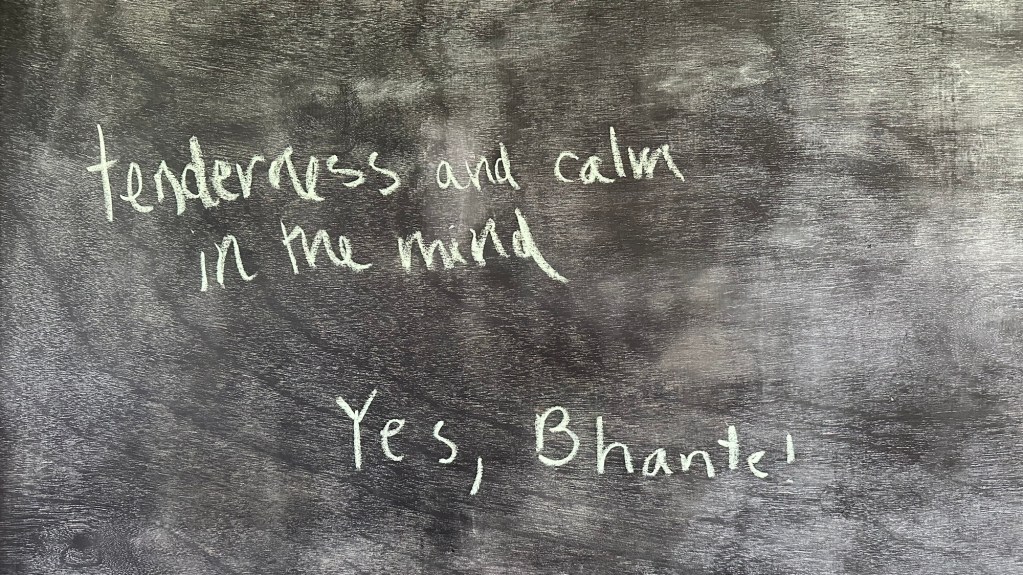 tenderness and calm
in the mind
Yes, Bhante!